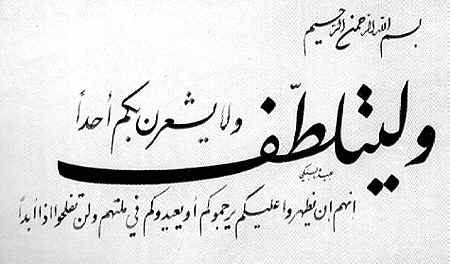 بسم الله الرحمن الرحيم
وليتلطّف ولا يشعرن بكم أحداً
إنهم إن يظهروا عليكم يرجموكم أو يعيدوكم في ملتهم ولن تفلحوا إذا أبداً